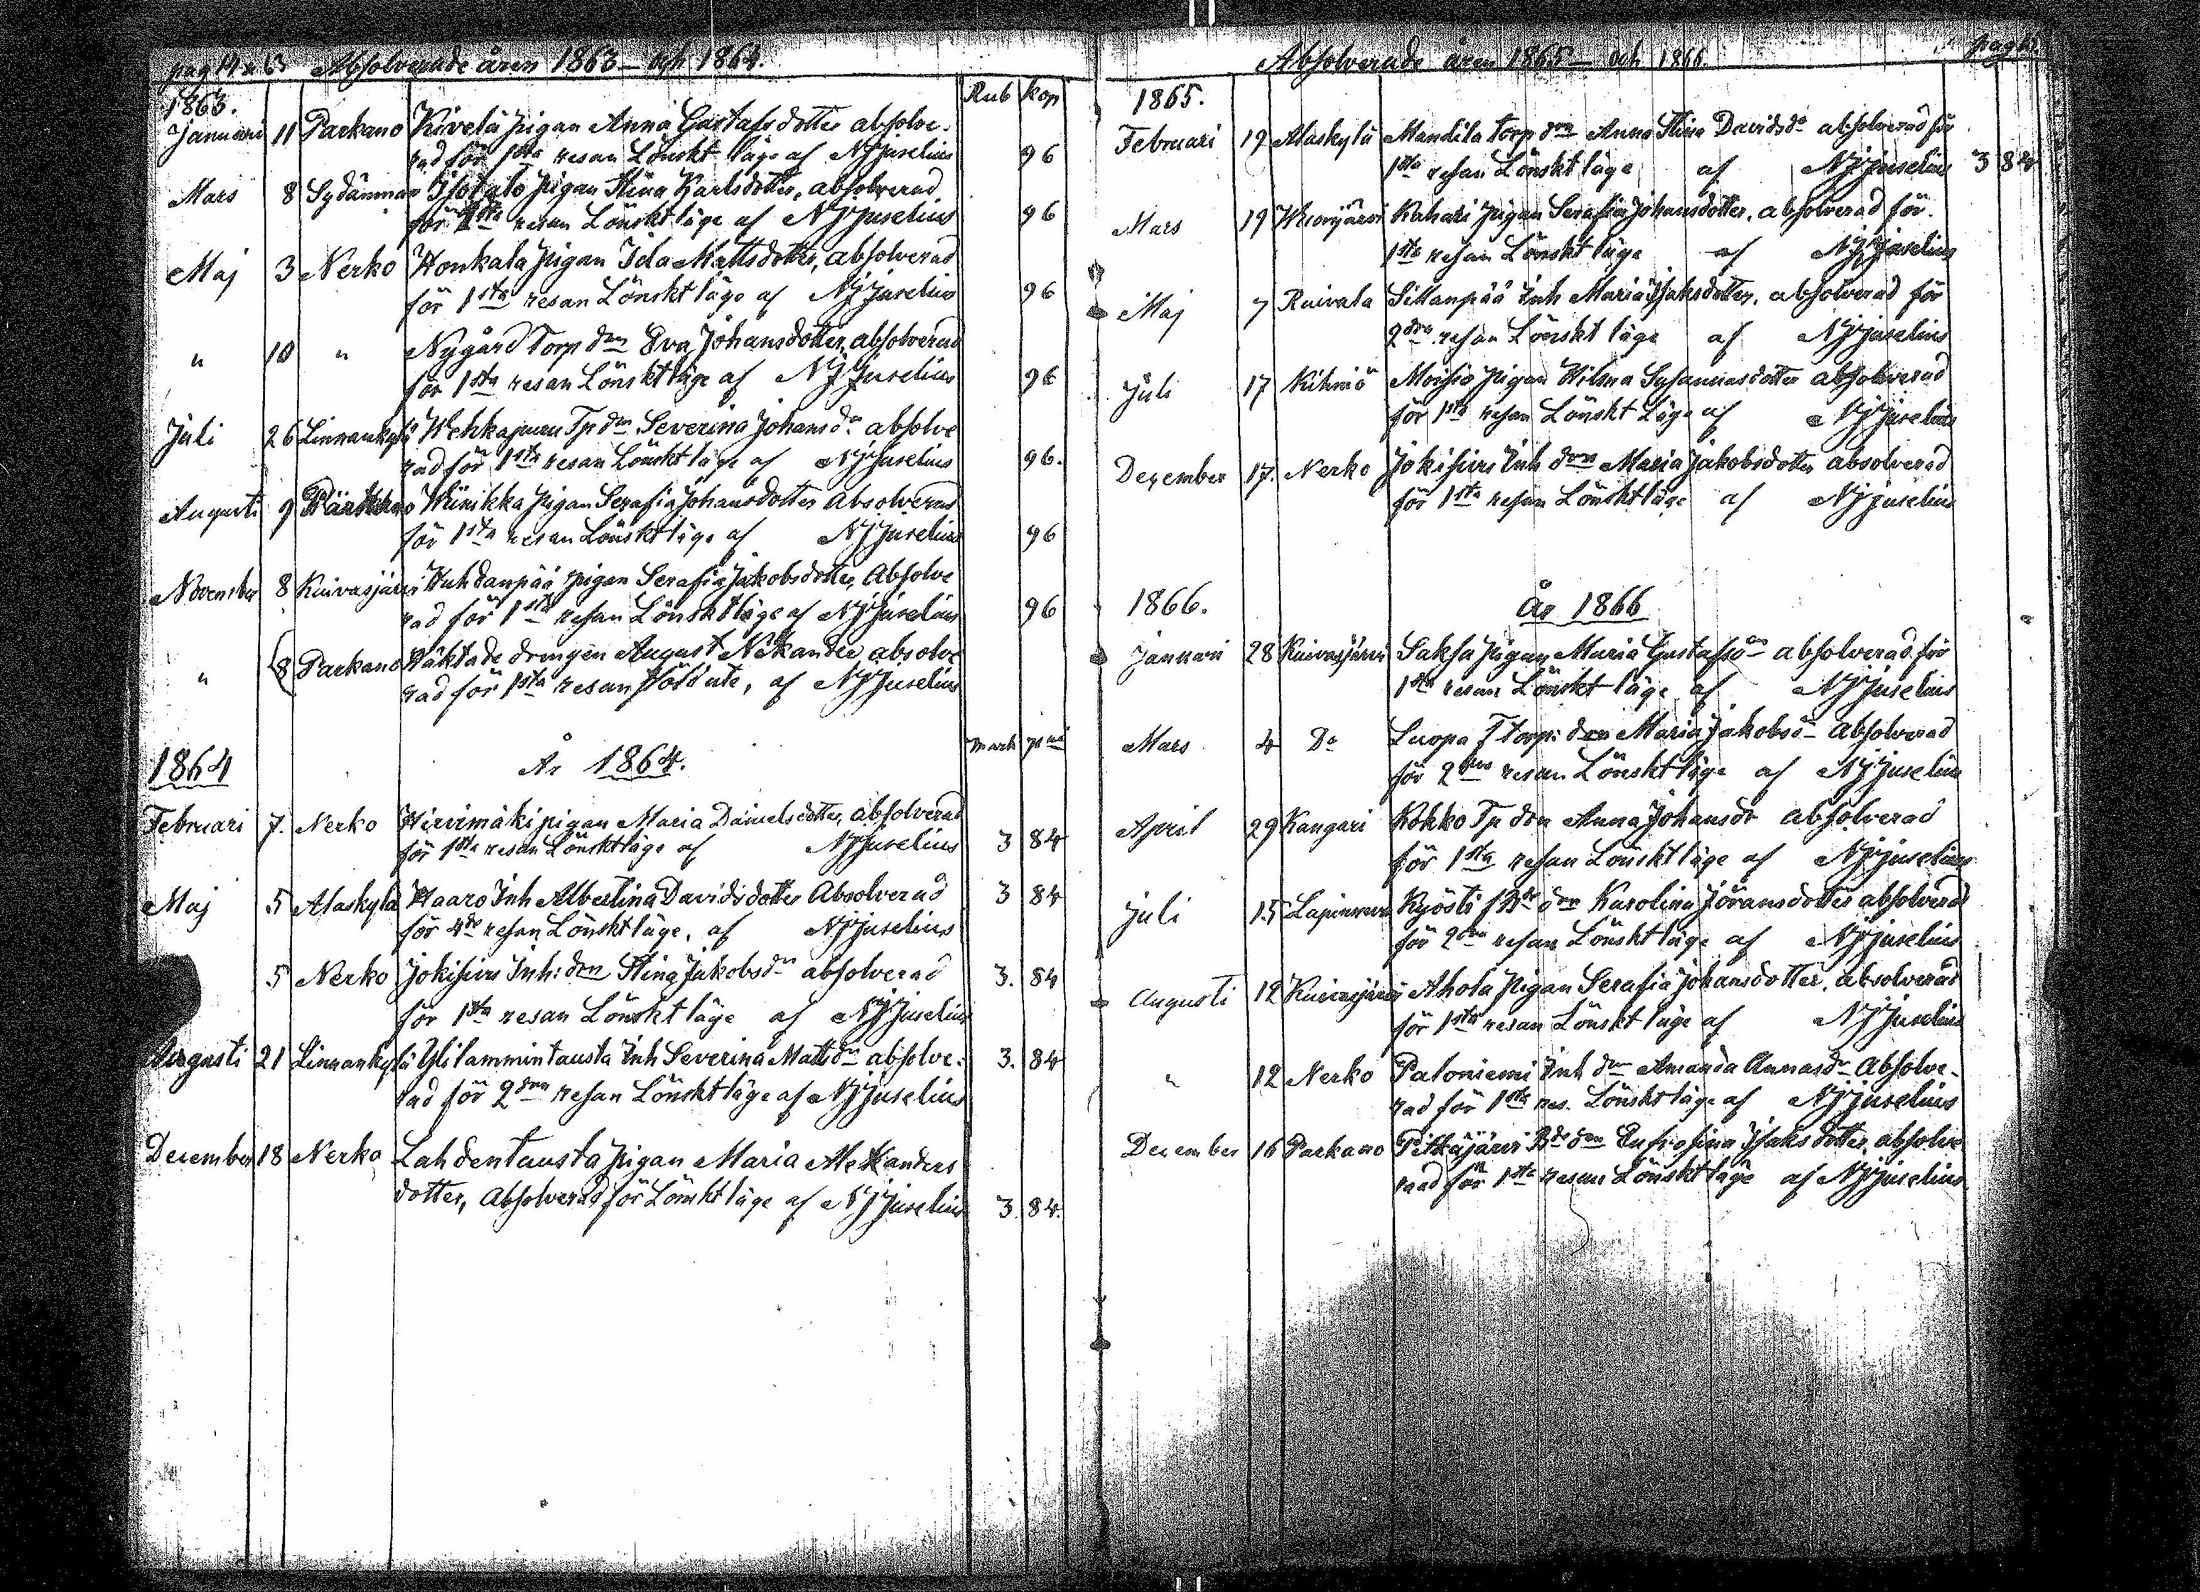 Absolverade åren 1863 – och 1864.
Rub kop
1863.
Januari 11 Parkano Kivelä pigan Anna Gustafsdotter absolve-
rad för 1sta resan Lönskt läge af NJJuselius 96
Mars 8 Sydänmaa Isotalo pigan Stina Karlsdotter, absolverad
för 1sta resan Lönskt läge af NJJuselius 96
Maj 3 Nerko Honkala pigan Ida Mattsdotter, absolverad
för 1sta resan Lönskt läge af NJJuselius 96
" 10 " Nygård Torp dren Eva Johansdotter, absolverad
för 1sta resan Lönskt läge af NJJuselius 96
Juli 26 Linnankylä Wehkapuru Tp drn Severina Johansdr absolve
rad för 1sta resan Lönskt läge af NJJuselius 96.
Augusti 9 Wiinikka pigan Serafia Johansdotter Absolverad
för 1sta resan Lönskt läge af NJJuselius 96
November 8 Kuivasjärvi Huhdanpää pigan Serafia Jakobsdotter, Absolve
rad för 1sta resan Lönskt läge af NJJuselius 96
" 8 Parkano Häktade drengen August Nikander absolve
rad för 1sta resan stöld ute, af NJJuselius
Mark pni
1864 År 1864.
Februari 7. Nerko Hirvimäki pigan Maria Danielsdotter, absolverad
för 1sta resan Lönskt läge af NJJuselius 3 84
Maj 5 Alaskylä Haaro Inh Albertina Davidsdotter Absolverad 3 84
för 4de resan Lönskt läge, af NJJuselius
5 Nerko Jokisivu Inh: drn Stina Jakobsdr absolverad 3. 84
för 1sta resan Lönskt läge af NJJuselius
Augusti 21 Linnankylä Ylilammintausta Inh Severina Mattsdr absolve- 3. 84
rad för 2dra resan Lönskt läge af NJJuselius
December 18 Nerko Lahdentausta pigan Maria Alexanders
dotter, Absolverad för Lönskt läge af NJJuselius 3. 84.
Absolverade åren 1865 – och 1866
1865.
Februari 19 Alaskylä Mandila Torp drn Anna Stina Davidsdr absolverad för
1sta resan Lönskt läge af NJJuselius 3 84
Mars 19 Wuorijärvi Kahari pigan Serafia Johansdotter, absolverad för
1sta resan Lönskt läge af NJJuselius
Maj 7 Raivala Sillanpää Inh Maria Isaksdotter, absolverad för
2dra resan Lönskt läge af NJJuselius
Juli 17 Kihniö Moisio pigan Wilma Susannasdotter absolverad
för 1sta resan Lönskt Läge af NJJuselius
December 17. Nerko Jokisivu Inh drn Maria Jakobsdotter absolverad
för 1sta resan Lönskt läge af NJJuselius
1866. År 1866
Januari 28 Kuivasjärvi Saksa pigan Maria Gustafsdr absolverad för
1sta resan Lönskt läge af NJJuselius
Mars 4 Do Luopa Torp: drn Maria Jakobsd– Absolverad
för 2dra resan Lönskt läge af NJJuselius
April 29 Kangari Kokko Tp drn Anna Johansdr absolverad
för 1sta resan Lönskt läge af NJJuselius
Juli 15 Lapinneva Kyösti Bde drn Karolina Jöransdotter absolverad
för 2dra resan Lönskt läge af NJJuselius
Augusti 12 Kuivasjärvi Ahola pigan Serafia Johansdotter, absolverad
för 1sta resan Lönskt läge af NJJuselius
" 12 Nerko Paloniemi Inh drn Amanda Annasdr Absolve-
rad för 1sta res. Lönskt läge af NJJuselius
December 16 Parkano Pitkäjärvi Bde drn Eufrosina Isaksdotter, absolve
rad för 1sta resan Lönskt läge af NJJuselius